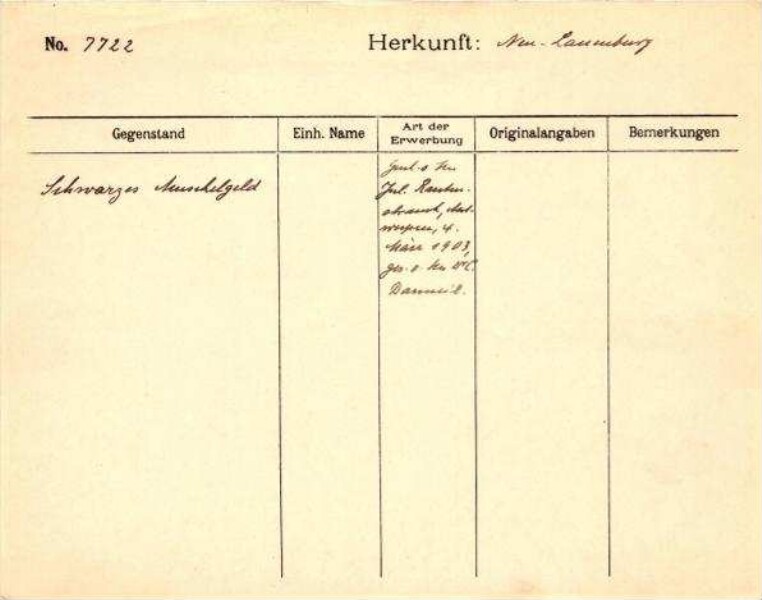 No. 7722
Herkunft: Neu-Lauenburg
Gegenstand
Einh. Name
Art der Erwerbung
Originalangaben
Bemerkungen
Schwarzes Muschelgeld
Jul. Rauten-
strauch, Ant-
werpen, 4.
März 1903,
ges. v. Hrn Dr C.